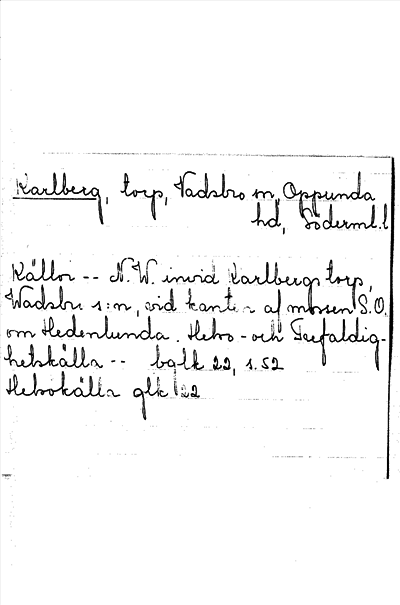 Karlberg, torp, Vadsbro sn, Oppunda
hd, Söderml.l
Källor -- N.W. invid Karlbergs torp,
Wadsbro s:n, vid kanten af mossen S.O.
om Hedenlunda. Helso- och Trefaldig-
hetskälla -- bglk 22, s. 52
Helsokälla glk 22